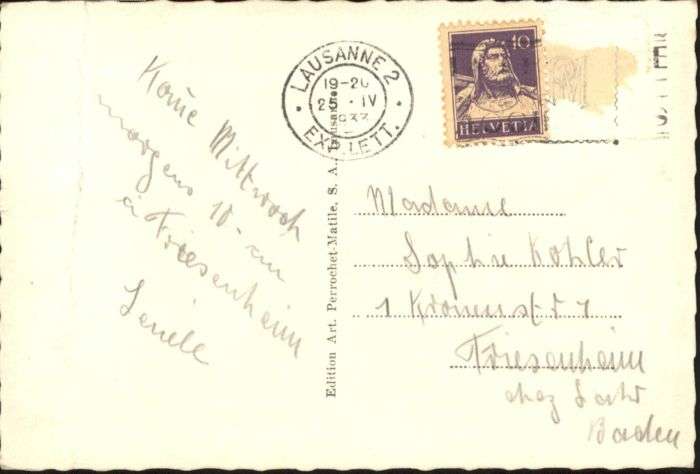 Kome Mittwoch
morgens 10 - um
in Friesenheim
LAUSANNE 2
19-20
25. IV
1933
EXP. LETT.
10
HELVETIA
Edition Art. Perrochet-Matile, S. A., Lausanne
Madame
Sophie Kohler
1 Kronenstr 1
Friesenheim
chez Lahr
Baden